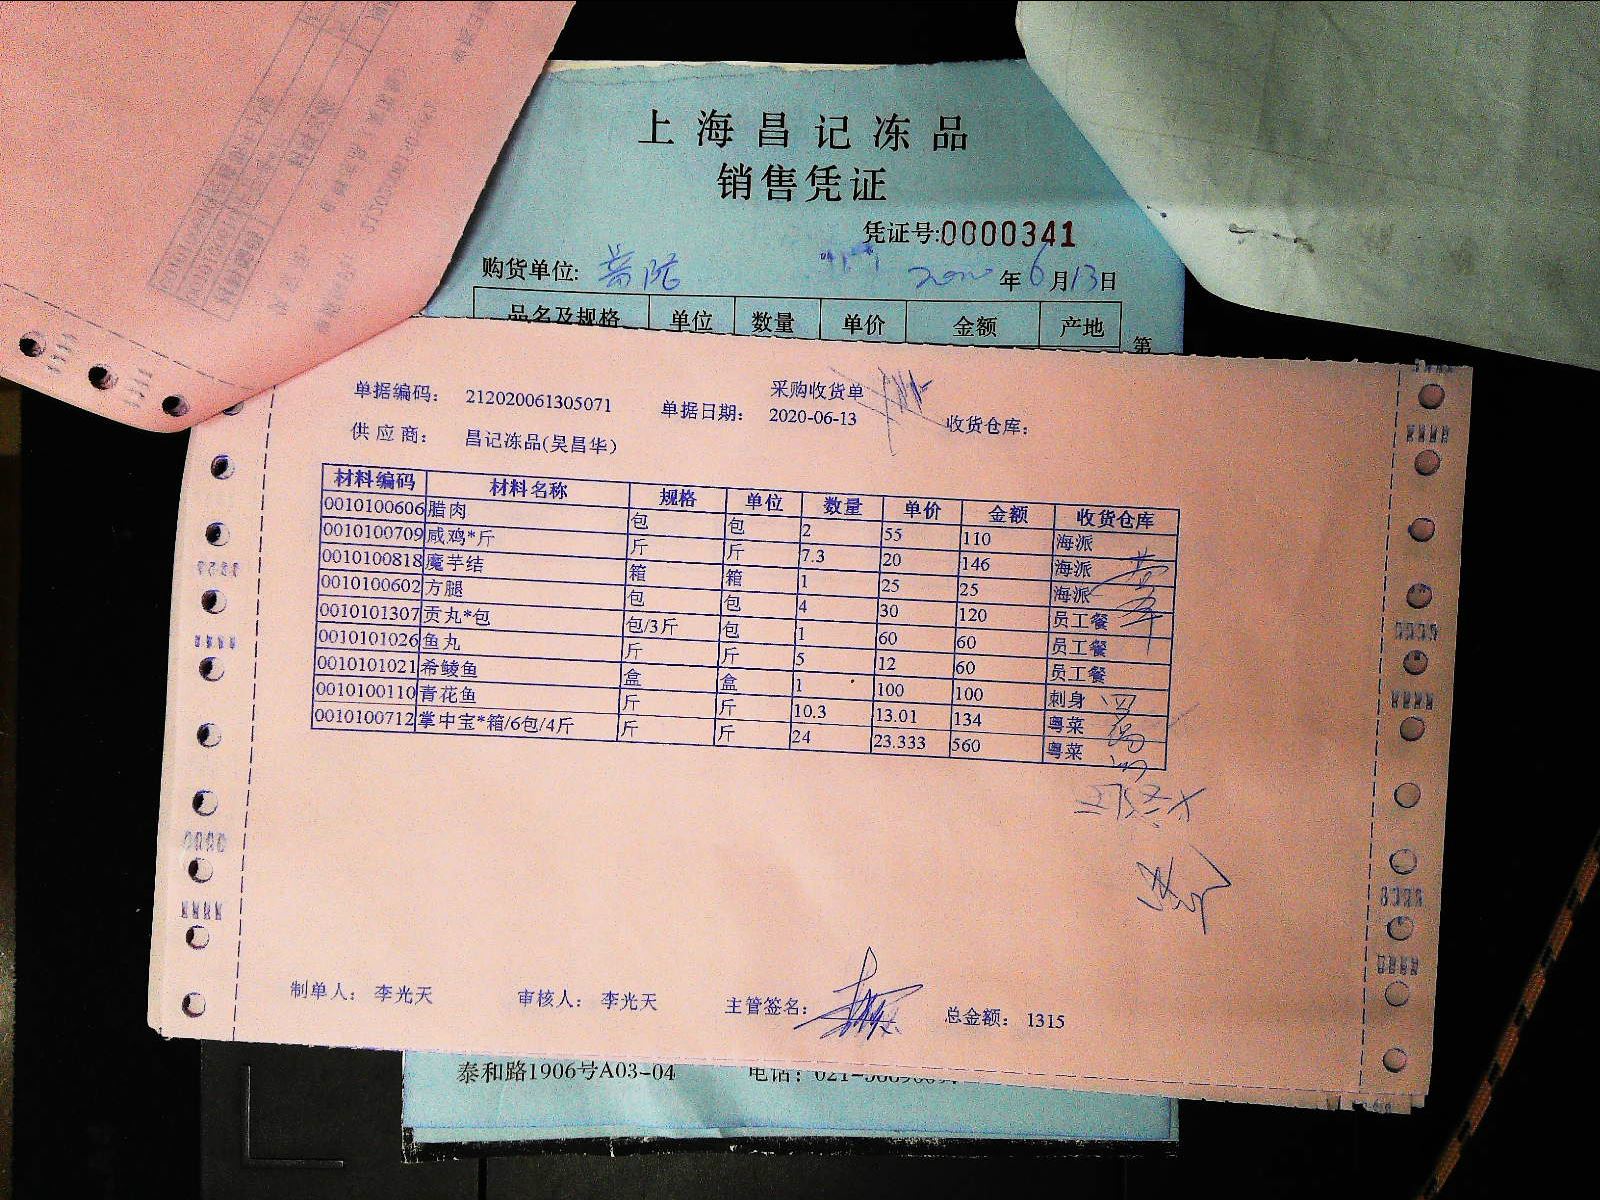 上海昌记冻品
销售凭证
凭证号:0000341
购货单位: 2020年6月13日
品名及规格 单位 数量 单价 金额 产地
第
采购收货单
单据编码: 212020061305071 单据日期: 2020-06-13 收货仓库:
供应商: 昌记冻品(吴昌华)
材料编码 材料名称 规格 单位 数量 单价 金额 收货仓库
0010100606 腊肉 包 包 2 55 110 海派
0010100709 咸鸡*斤 斤 斤 7.3 20 146 海派
0010100818 魔芋结 箱 箱 1 25 25 海派
0010100602 方腿 包 包 4 30 120 员工餐
0010101307 贡丸*包 包/3斤 包 1 60 60 员工餐
0010101026 鱼丸 斤 斤 5 12 60 员工餐
0010101021 希鲮鱼 盒 盒 1 100 100 刺身
0010100110 青花鱼 斤 斤 10.3 13.01 134 粤菜
0010100712 掌中宝*箱/6包/4斤 斤 斤 24 23.333 560 粤菜
制单人: 李光天 审核人: 李光天 主管签名: 总金额: 1315
泰和路1906号A03-04 电话: